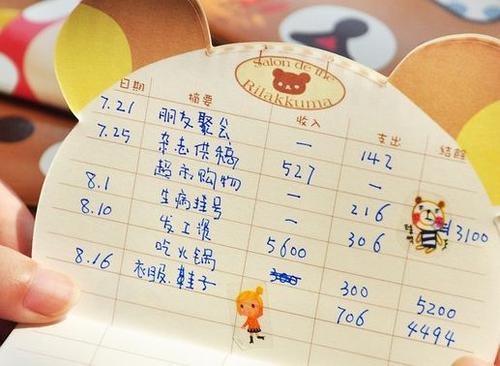 Salon de thé
Rilakkuma
日期 摘要 收入 支出 结余
7.21 朋友聚会 — 142
7.25 杂志供稿 527 —
超市购物 — 216 3100
8.1 生病挂号 — 306
8.10 发工资 5600
吃火锅 300 5200
8.16 衣服.鞋子 706 4494